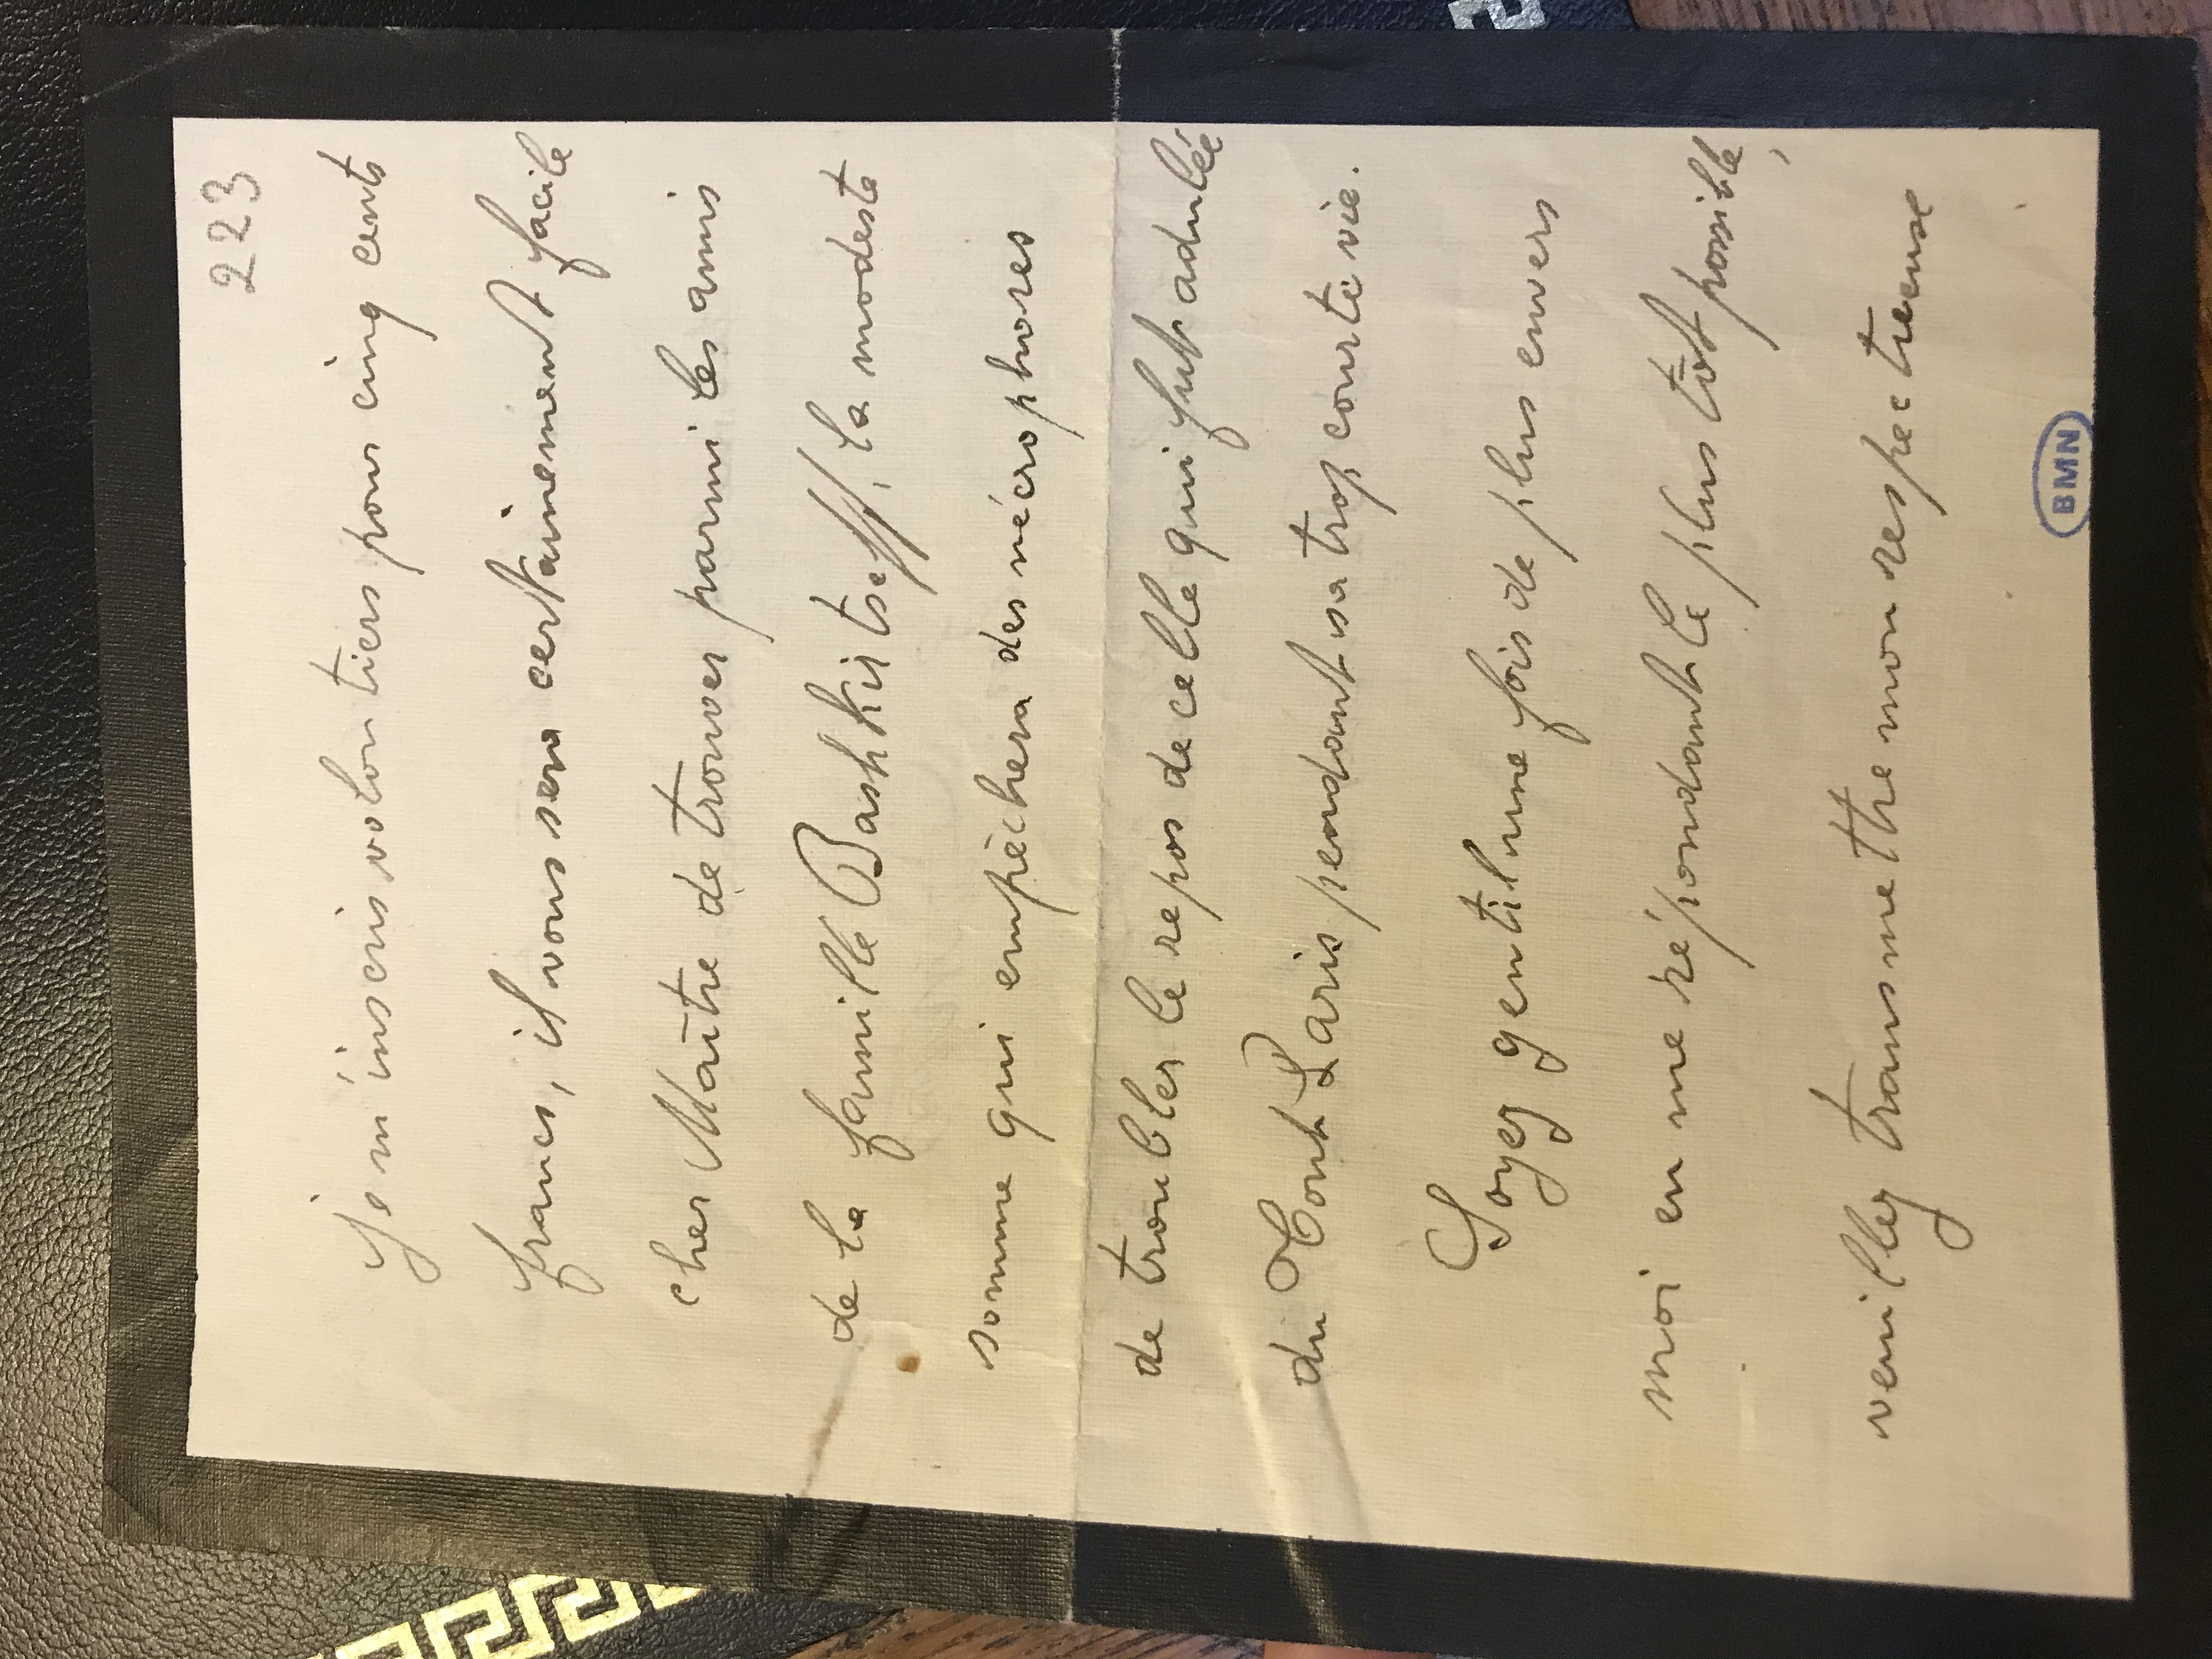 223
Je m'inscris volontiers pour cinq cents
francs, il vous sera certainement facile
cher Maître de trouver parmi les amis
de la famille Bashkirtseff, la modeste
somme qui empèchera des nécrophores
de troubler le repos de celle qui fut adulée
du Tout Paris pendant sa trop courte vie.
Soyez gentil une fois de plus envers
moi en me répondant le plus tôt possible,
veuillez transmettre mon respectueuse
BMN